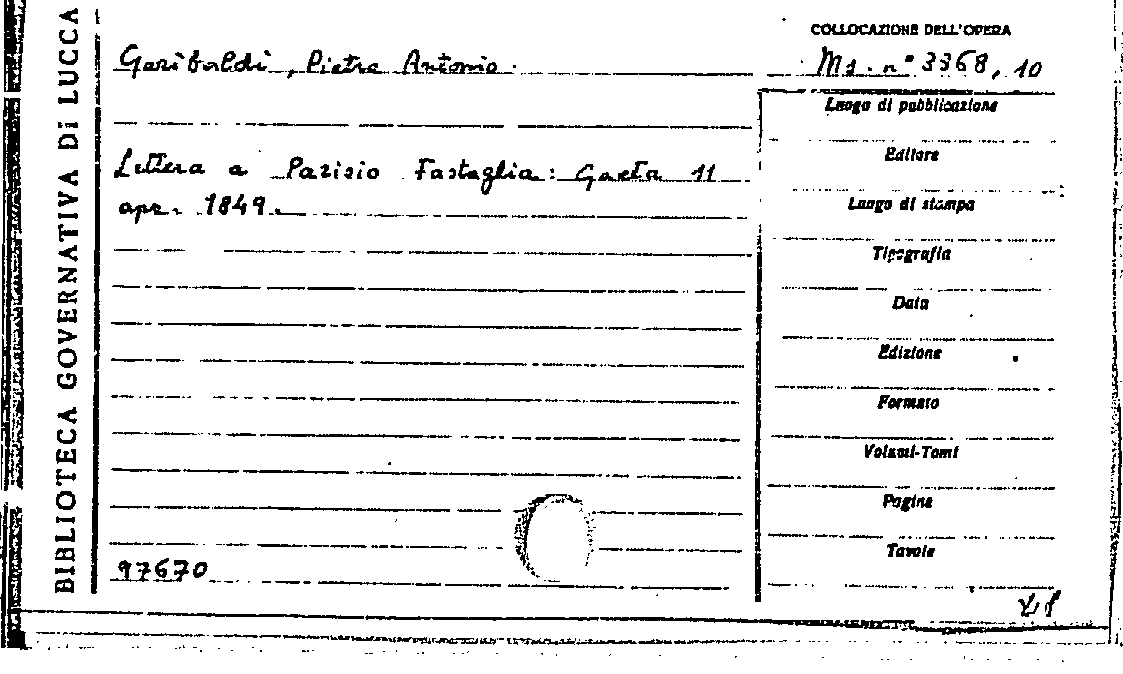 BIBLIOTECA GOVERNATIVA DI LUCCA
COLLOCAZIONE DELL'OPERA
Garibaldi, Pietro Antonio.
Ms. n° 3368, 10
Luogo di pubblicazione
Lettera a Parisio Fastaglia: Gaeta 11
apr. 1849.
Editore
Luogo di stampa
Tipografia
Data
Edizione
Formato
Volumi-Tomi
Pagine
Tavole
97670